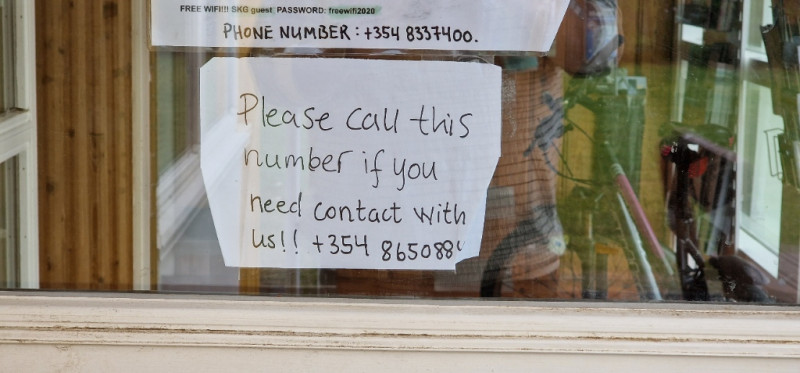 FREE WIFI!!! SKG guest PASSWORD: freewifi2020
PHONE NUMBER: +354 8337400.
Please call this
number if you
need contact with
us!! +354